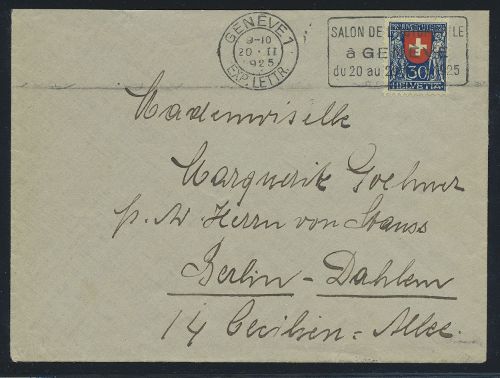 GENÈVE 1
9-10
20 · II
1925
EXP. LETTR.
SALON DE
à GE
du 20 au 2 25
PRO JUVENTUTE
30
HELVETIA
Mademoiselle
Marguerite Goehner
p. Ad. Herrn von Stauss
Berlin - Dahlem
14 Cecilien - Allee.